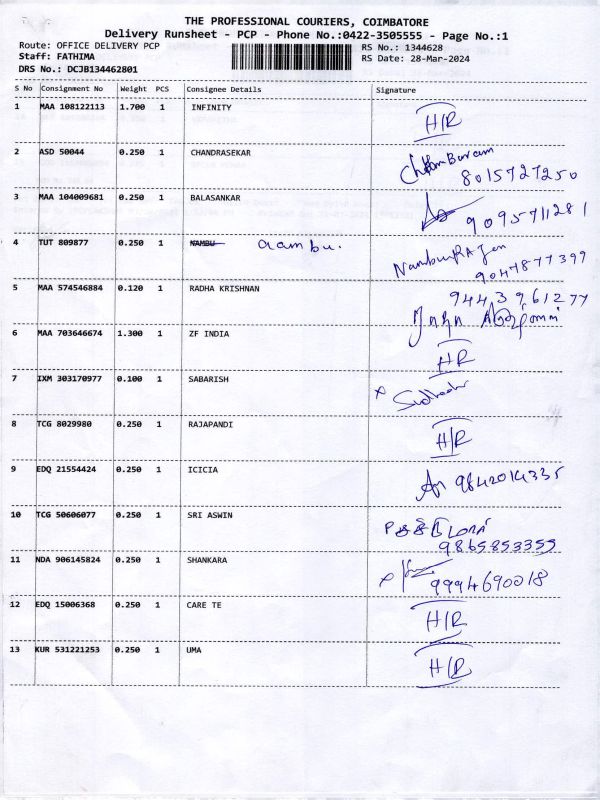 THE PROFESSIONAL COURIERS, COIMBATORE
Delivery Runsheet - PCP - Phone No.:0422-3505555 - Page No.:1
Route: OFFICE DELIVERY PCP RS No.: 1344628
Staff: FATHIMA RS Date: 28-Mar-2024
DRS No.: DCJB134462801
S No Consignment No Weight PCS Consignee Details Signature
1 MAA 108122113 1.700 1 INFINITY H/R
2 ASD 50044 0.250 1 CHANDRASEKAR
8015727250
3 MAA 104009681 0.250 1 BALASANKAR 9095711281
4 TUT 809877 0.250 1 NAMBU
9047877399
5 MAA 574546884 0.120 1 RADHA KRISHNAN 9443961277
6 MAA 703646674 1.300 1 ZF INDIA H/R
7 IXM 303170977 0.100 1 SABARISH
8 TCG 8029980 0.250 1 RAJAPANDI H/R
9 EDQ 21554424 0.250 1 ICICIA 9842014335
10 TCG 50606077 0.250 1 SRI ASWIN
9865853355
11 NDA 906145824 0.250 1 SHANKARA 9994690018
12 EDQ 15006368 0.250 1 CARE TE H/R
13 KUR 531221253 0.250 1 UMA H/R